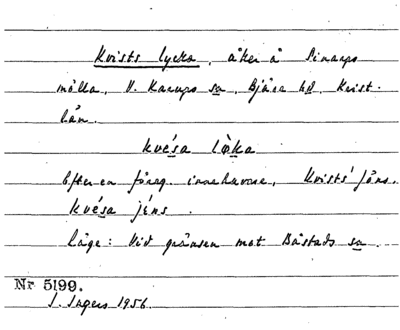 Kvists lycka, åker å Sinarps
mölla, V. Karups sn, Bjäre hd, Krist.
län.
kvésa lȯ̀ka
Efter en föreg. innehavare, Kvists' Jöns.
kvésa jéns.
Läge: Vid gränsen mot Båstads sn.
Nr 5199.
I. Ingers 1956.